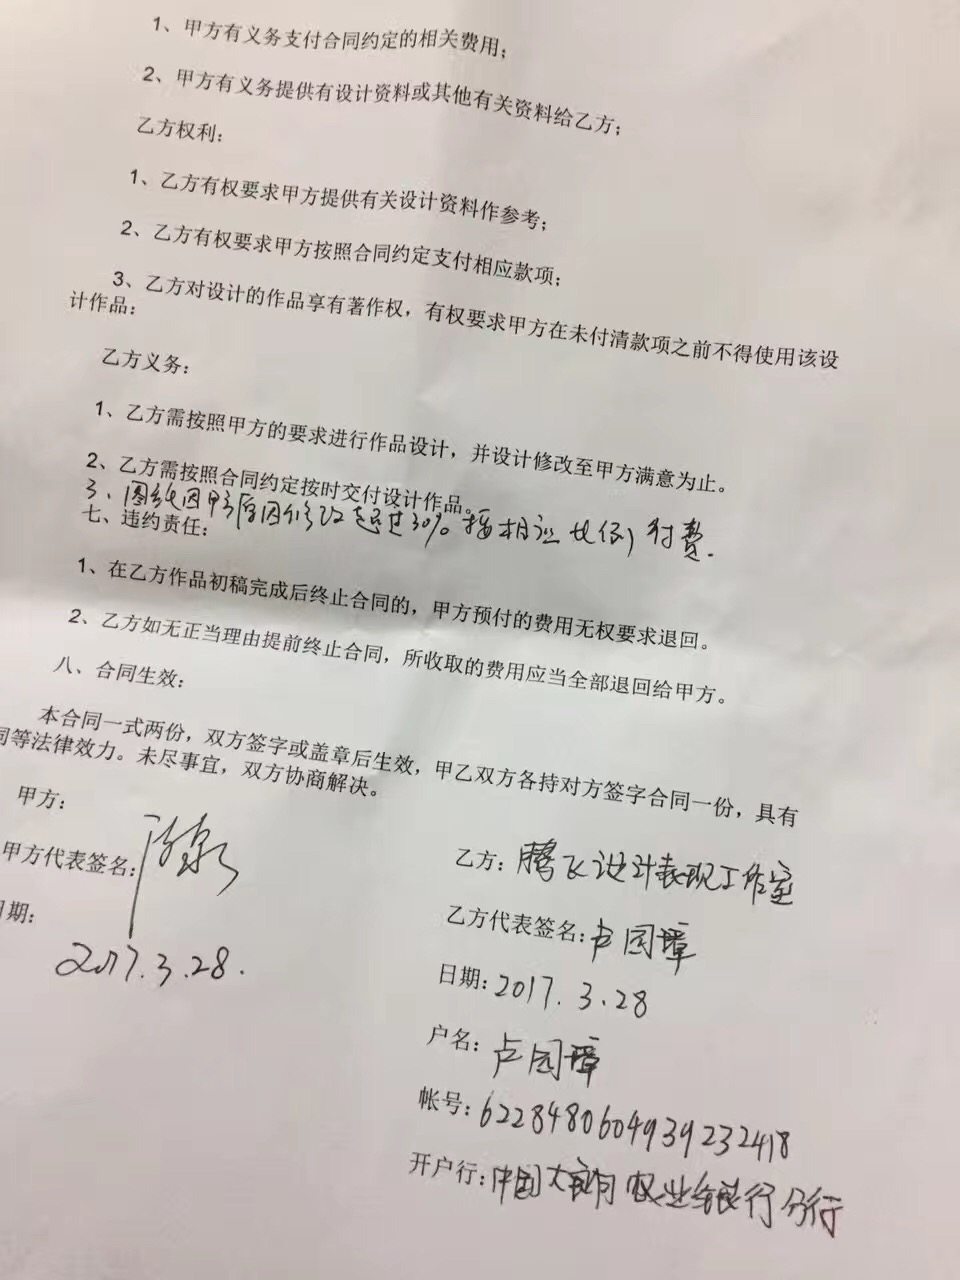 1、甲方有义务支付合同约定的相关费用；
2、甲方有义务提供有设计资料或其他有关资料给乙方；
乙方权利：
1、乙方有权要求甲方提供有关设计资料作参考；
2、乙方有权要求甲方按照合同约定支付相应款项；
3、乙方对设计的作品享有著作权，有权要求甲方在未付清款项之前不得使用该设
计作品：
乙方义务：
1、乙方需按照甲方的要求进行作品设计，并设计修改至甲方满意为止。
2、乙方需按照合同约定按时交付设计作品。
3、图纸因甲方原因修改超过30%按相应比例付费.
七、违约责任：
1、在乙方作品初稿完成后终止合同的，甲方预付的费用无权要求退回。
2、乙方如无正当理由提前终止合同，所收取的费用应当全部退回给甲方。
八、合同生效：
本合同一式两份，双方签字或盖章后生效，甲乙双方各持对方签字合同一份，具有
同等法律效力。未尽事宜，双方协商解决。
甲方：
甲方代表签名：
日期：
2017.3.28.
乙方：腾飞设计表现工作室
乙方代表签名：卢园璋
日期：2017.3.28
户名：卢园璋
帐号：6228480604939232418
开户行：中国 农业银行 分行